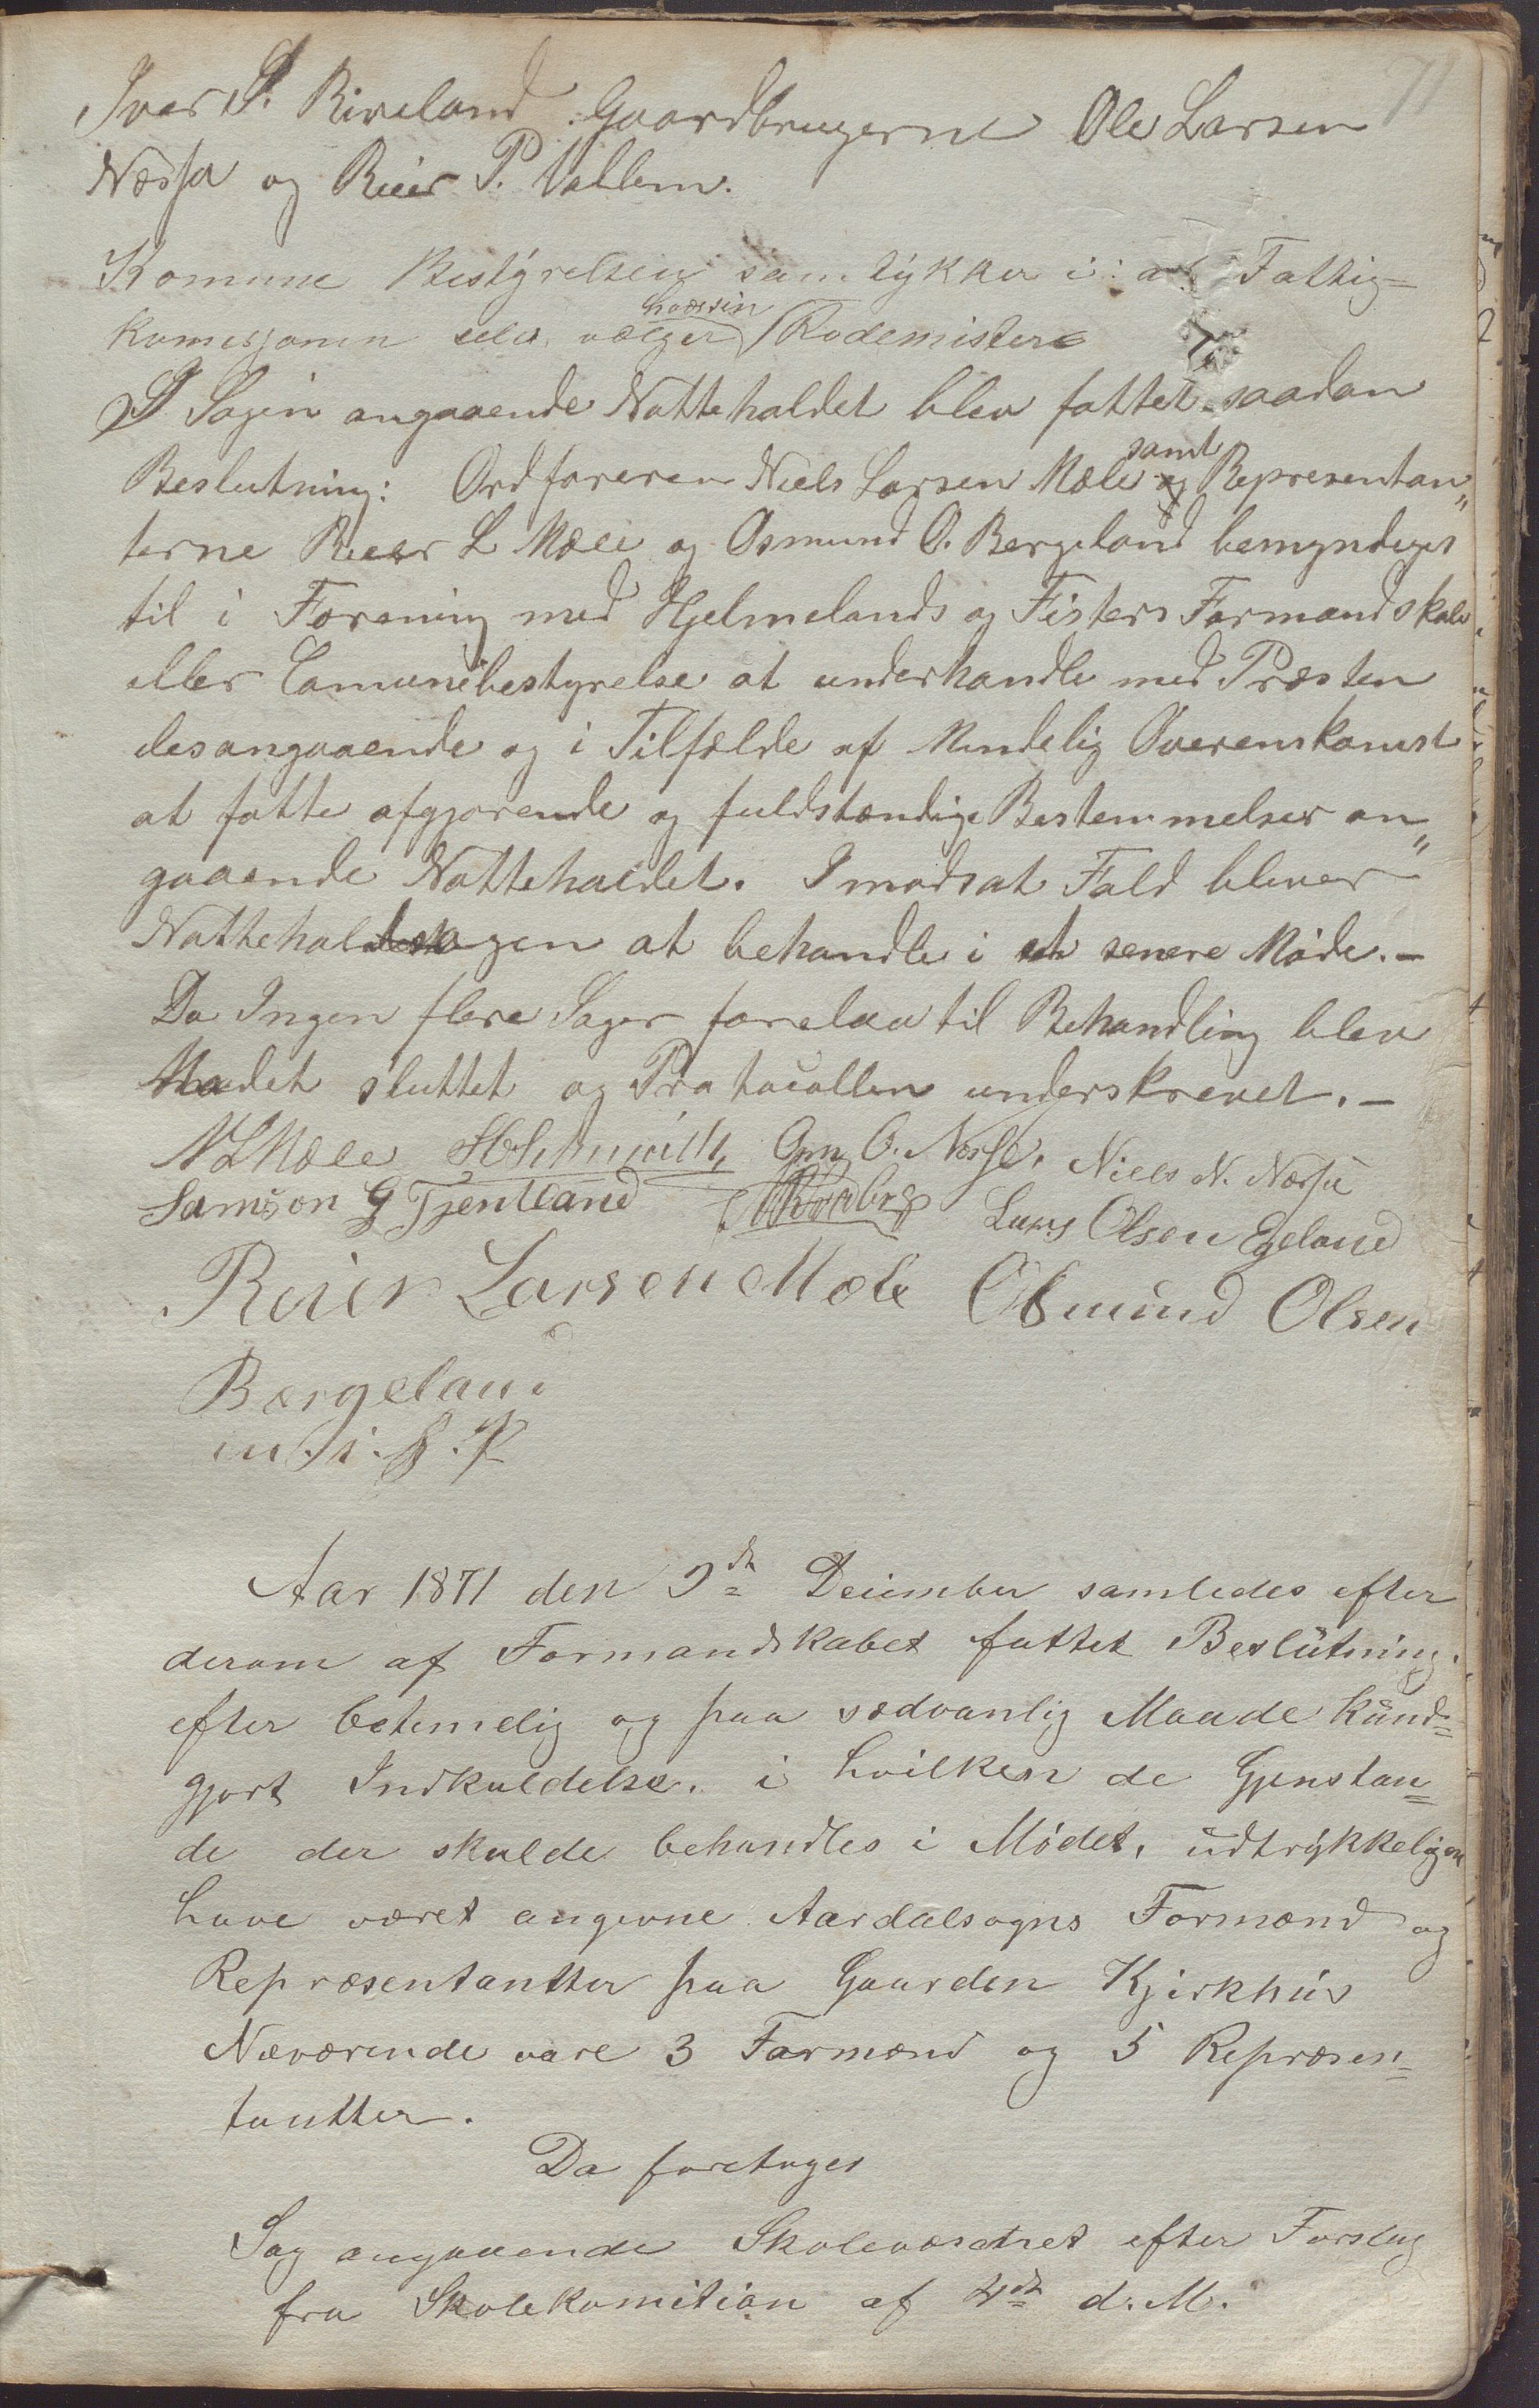 71
Iver P. Riveland Gaardbrugerne Ole Larsen
Næssa og Reier P. Vallem.
Komune Bestyrelsen samtykker i: at Fattig=
Komisjonen selv vælger hversin Rodemistere
I Sagen angaaende Natteholdet blev fattet saadan
Beslutning: Ordføreren Niels Larsen Mæle samt Representan"
terne Reier L Mæle og Osmund O. Bergeland bemyndiges
til i Forening med Hjelmelands og Fisters Formandskab
eller Comunebestyrelse at underhandle med Præsten
desangaaende og i Tilfælde af Mindelig Overenskomst
at fatte afgjørende og fuldstændige Bestemmelser an"
gaaende Natteholdet. I modsat Fald bliver
Natteholdsagen at behandle i et senere Møde. -
Da Ingen flere Sager forelaa til Behandling blev
Mødet sluttet og Protocollen underskrevet. -
N L Mæle Gm O. Næsse. Niels N. Næssa
Samson G Tjentland Lars Olsen Egeland
Reier Larsen Mæle Osmund Olsen
Bergeland
m. i. P. P
Aar 1871 den 9de December samledes efter
derom af Formandskabet fattet Beslutning.
efter betimelig og paa sædvanlig Maade kund=
gjort Indkaldelse. i hvilken de Gjenstan=
de der skulde behandles i Mødet, udtrykkeligen
have været angivne Aardalsogns Formænd og
Repræsentantter paa Gaarden Kjirkhus
Næværende vare 3 Formænd og 5 Repræsen=
tantter.
Da foretages
Sag angaaende Skolevæsenet efter Forslag
fra Skolekomition af 4de d. M.